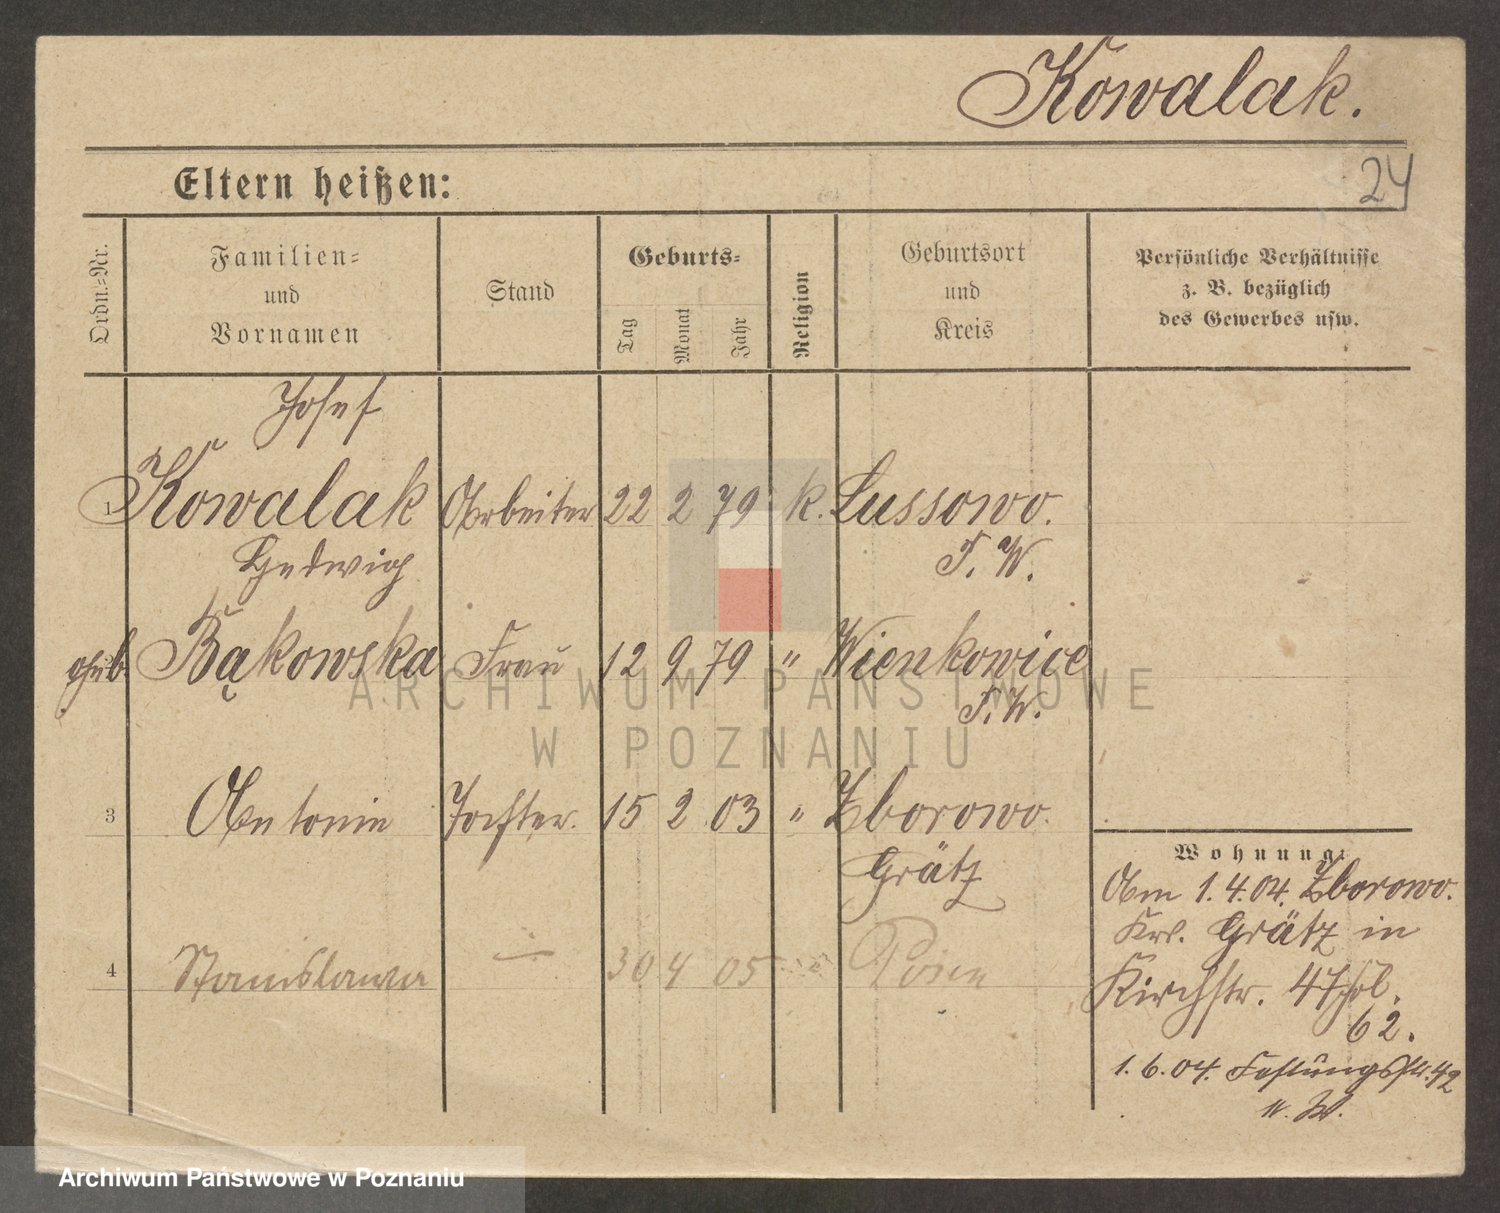 Kowalak.
Eltern heißen:
24
Ordn.-Nr.
Familien-
und
Vornamen
Stand
Geburts-
Tag
Monat
Jahr
Religion
Geburtsort
und
Kreis
Persönliche Verhältnisse
z. B. bezüglich
des Gewerbes usw.
Josef
1 Kowalak Arbeiter 22 2 79 k. Lussowo.
Hedwig P. W.
geb. Bąkowska Frau 12 9 79 " Wienkowice
P. W.
3 Antonie Tochter. 15 2 03 " Zborowo.
Grätz
4 Stanislawa — 30 4 05 " Posen
Wohnung:
Am 1.4.04. Zborowo.
Krs. Grätz in
Kirchstr. 47
62.
1.6.04. Festungsstr. 42
ARCHIWUM PAŃSTWOWE
W POZNANIU
Archiwum Państwowe w Poznaniu